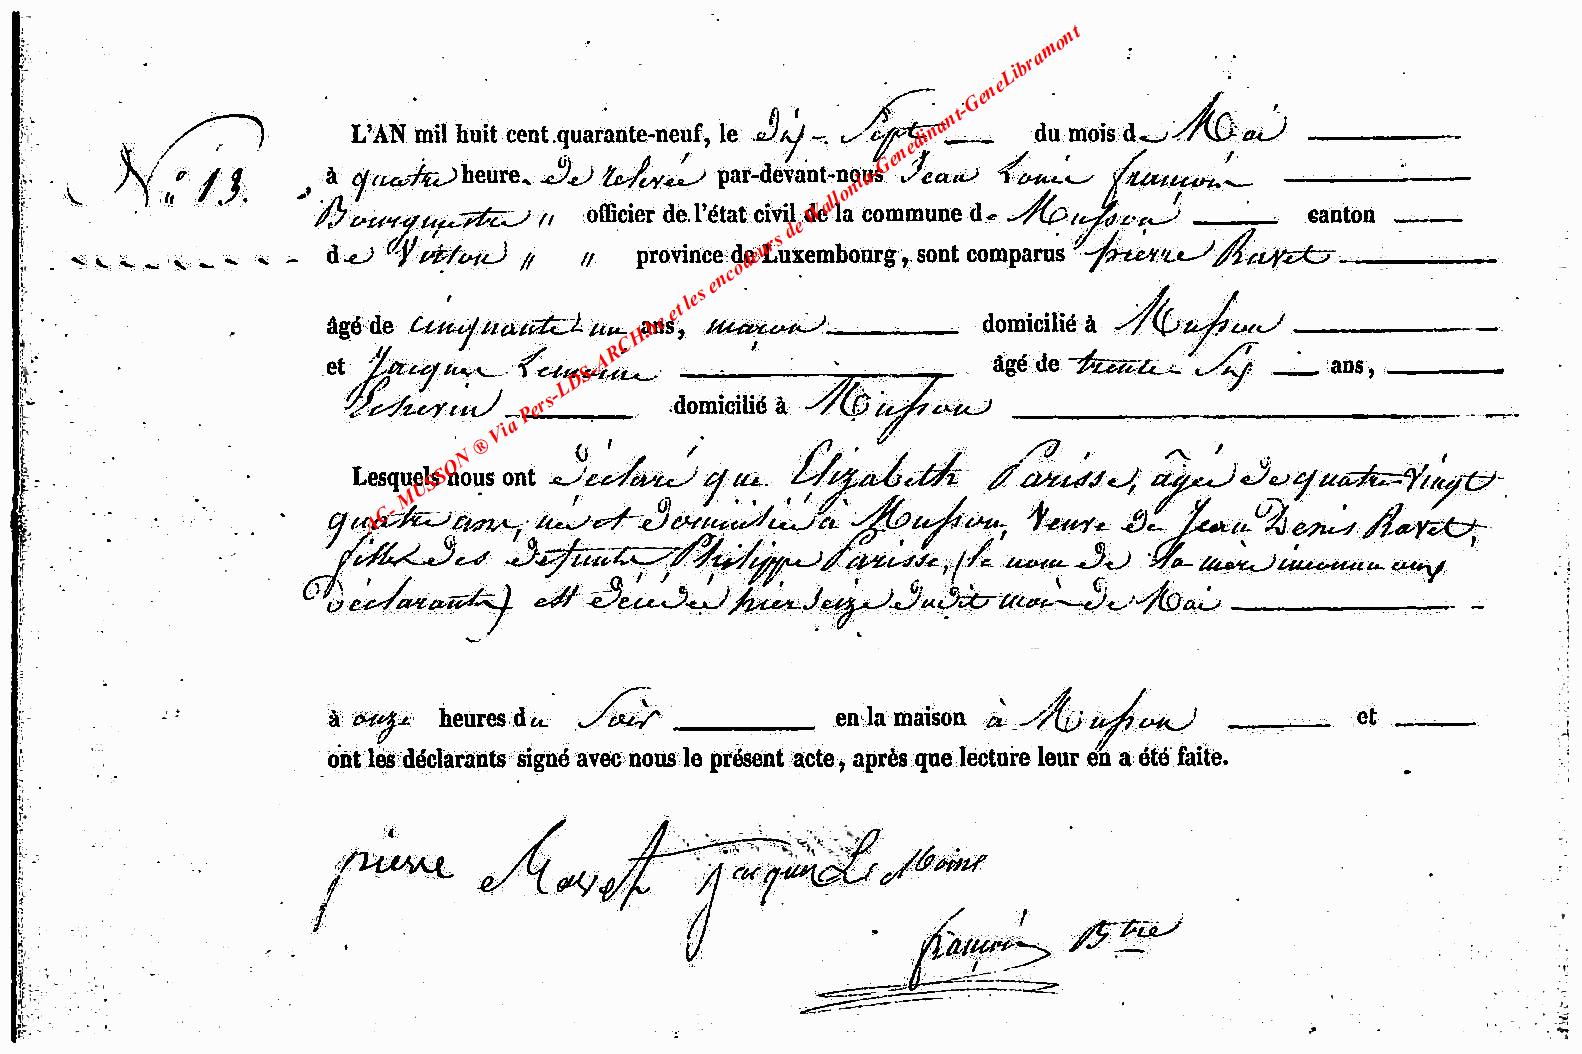 AC-MUSSON ® Via Pers-LDS-ARCHive et les encodeurs de Wallonia-Genedinant-GeneLibramont
N° 13.
L'AN mil huit cent quarante-neuf, le dix-Sept du mois de Mai
à quatre heure de relevée par-devant-nous Jean Louis françois
Bourgmestre " officier de l'état civil de la commune de Musson canton
de Virton " " province de Luxembourg, sont comparus pierre Ravet
âgé de cinquante-un ans, maçon domicilié à Musson
et Jacques Lemoine âgé de trente-Six ans,
Echevin domicilié à Musson
Lesquels nous ont déclaré que Elizabeth Parisse, âgée de quatre-vingt
quatre ans, née et domiciliée à Musson, Veuve de Jean Denis Ravet,
fille des defunts Philippe Parisse, (le nom de la mère inconnu aux
déclarants) est décédée hier seize dudit mois de Mai
à onze heures du Soir en la maison à Musson et
ont les déclarants signé avec nous le présent acte, après que lecture leur en a été faite.
pierre Ravet Jacques Le Moine
françois Btre